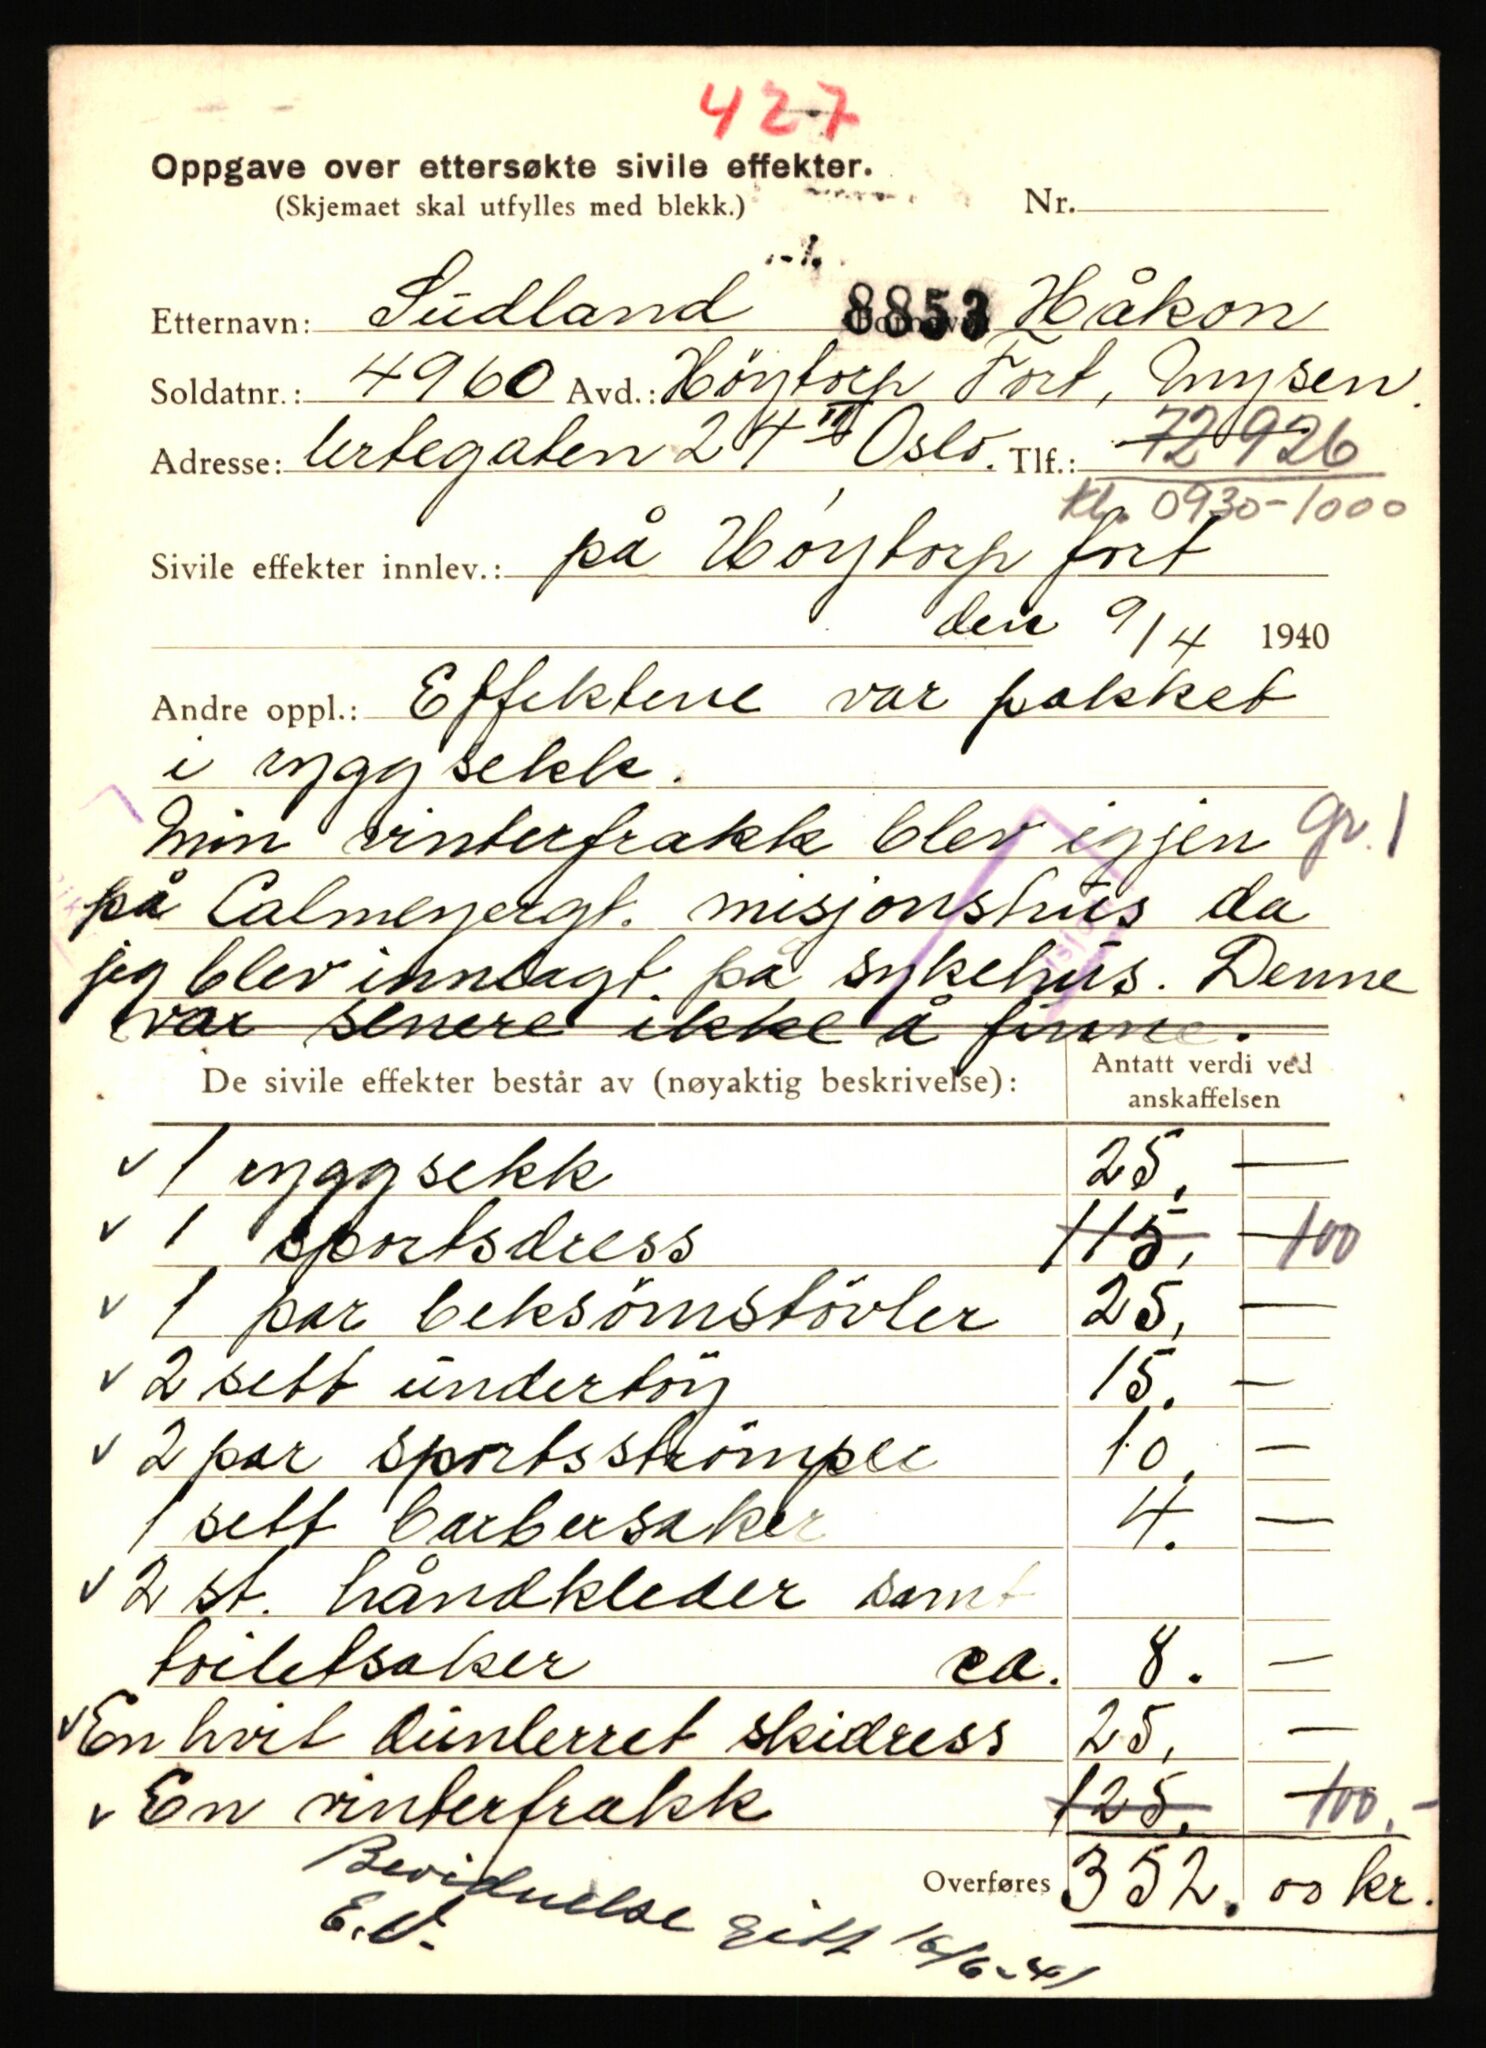 427
Oppgave over ettersøkte sivile effekter.
(Skjemaet skal utfylles med blekk.)
Nr.
Etternavn: Südland 8853 Håkon
Soldatnr.: 4960 Avd.: Höytorp Fort, Mysen.
Adresse: Urtegaten 24 II Oslo. Tlf.: 72926
kl. 0930-1000
Sivile effekter innlev.: på Höytorp fort
den 9/4 1940
Andre oppl.: Effektene var pakket
i ryggsekk.
Min vinterfrakk blev igjen gr. 1
på Calmeyergt. misjonshus da
jeg blev innlagt på sykehus. Denne
var senere ikke å finne.
De sivile effekter består av (nøyaktig beskrivelse): Antatt verdi ved
anskaffelsen
✓ 1 ryggsekk 25, —
✓ 1 sportsdress 115, — 100
✓ 1 par beksömstövler 25, —
✓ 2 sett undertöy 15. —
✓ 2 par sportsströmper 10, —
1 sett barbersaker 4. —
✓ 2 st. håndkleder samt
toiletsaker ca. 8. —
✓ En hvit dunlerret skidress 25, —
✓ En vinterfrakk 125, 100.-
Overføres 352. 00 kr.
Bevidnelse gitt 16/6-41
E.V.